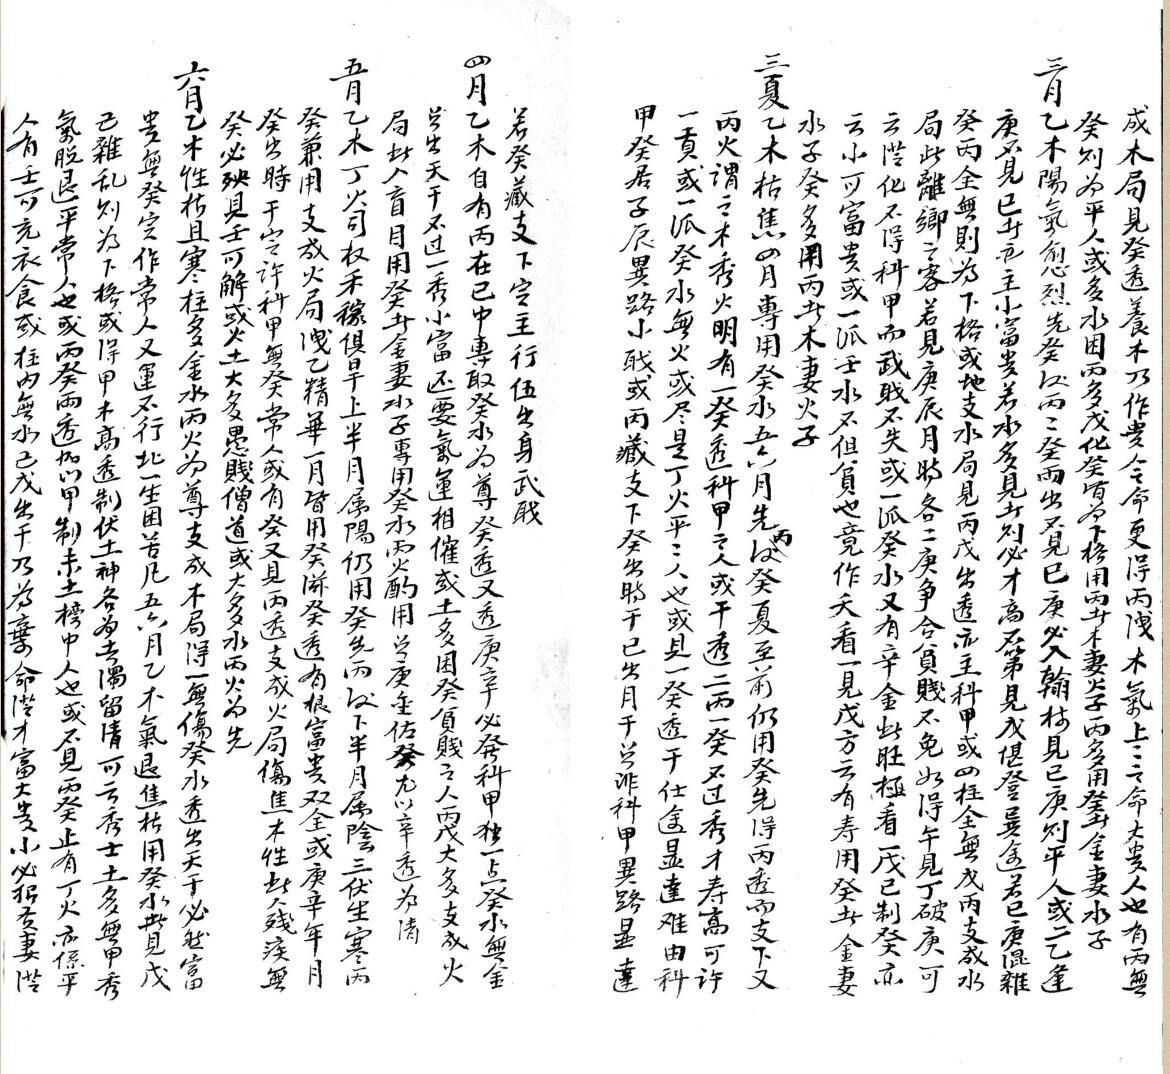 成木局見癸透養木乃作貴人之命更得丙洩木氣上上之命大貴人也有丙無
癸則為平人或多水困丙多戊化癸皆為下格用丙者木妻火子丙多用癸者金妻水子
三月乙木陽氣愈烈先癸後丙丙癸兩出不見己庚必入翰林見己庚則平人或二乙逢
庚不見己者亦主小富貴若水多見土則必才高不第見戊堪登異途若己庚混雜
癸丙全無則為下格或地支水局見丙戊出透亦主科甲或四柱全無戊丙支成水
局此離鄉之客若見庚辰月時各二庚爭合貧賤不免如得午見丁破庚可
云從化不得科甲而武職不失或一派癸水又有辛金此旺極看一戊己制癸亦
云小可富貴或一派壬水不但貧也竟作夭看一見戊方云有寿用癸者金妻
水子癸多用丙者木妻火子
三夏乙木枯焦四月專用癸水五六月先丙後癸夏至前仍用癸先得丙透而支下又
丙火謂之木秀火明有一癸透科甲之人或干透二丙一癸不过秀才寿高可許
一貢或一派癸水無火或尽是丁火平平人也或見一癸透干仕途显達难由科
甲癸居子辰異路小职或丙藏支下癸出時干己出月干豈非科甲異路显達
若癸藏支下定主行伍出身武职
四月乙木自有丙在巳中專取癸水為尊癸透又透庚辛必發科甲独一点癸水無金
豈出天干不过一秀小富还要氣運相催或土多困癸貧賤之人丙戊大多支成火
局此人盲目用癸者金妻水子專用癸水丙火酌用豈庚金佐癸尤以辛透為清
五月乙木丁火司权禾稼俱旱上半月属陽仍用癸先丙後下半月属陰三伏生寒丙
癸兼用支成火局洩乙精華一月皆用癸併癸透有根富貴双全或庚辛年月
癸出時干定許科甲無癸常人或有癸又見丙透支成火局傷焦木性此人殘疾無
癸必殀見壬可解或火土大多愚賤僧道或大多水丙火為先
六月乙木性枯且寒柱多金水丙火為尊支成木局得一無傷癸水透出天干必然富
貴無癸定作常人又運不行北一生困苦凡五六月乙木氣退焦枯用癸水此見戊
己雜乱則為下格或得甲木高透制伏土神各為去濁留清可云秀士土多無甲秀
氣脫退平常人也或丙癸兩透加以甲制未土榜中人也或不見丙癸止有丁火亦係平
人有壬可充衣食或柱內無水己戊出干乃為棄命從才富大貴小必招吝妻從